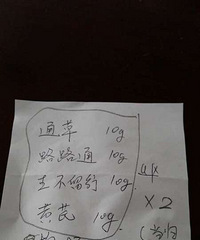 通草 10g
路路通 10g
王不留行 10g
黄芪 10g
×2
(当归